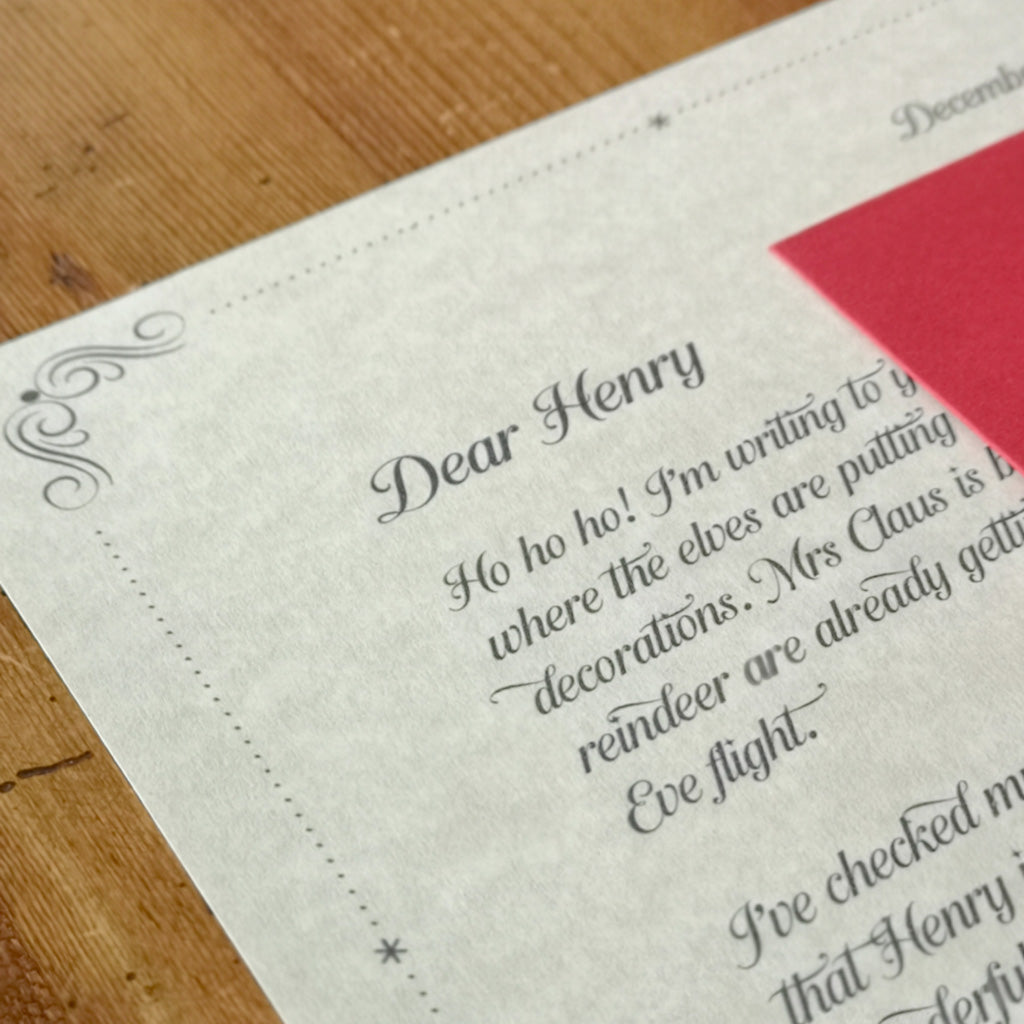 Dear Henry
Ho ho ho! I'm writing to
where the elves are putting
decorations. Mrs Claus is
reindeer are already
Eve flight.
I've checked
that Henry